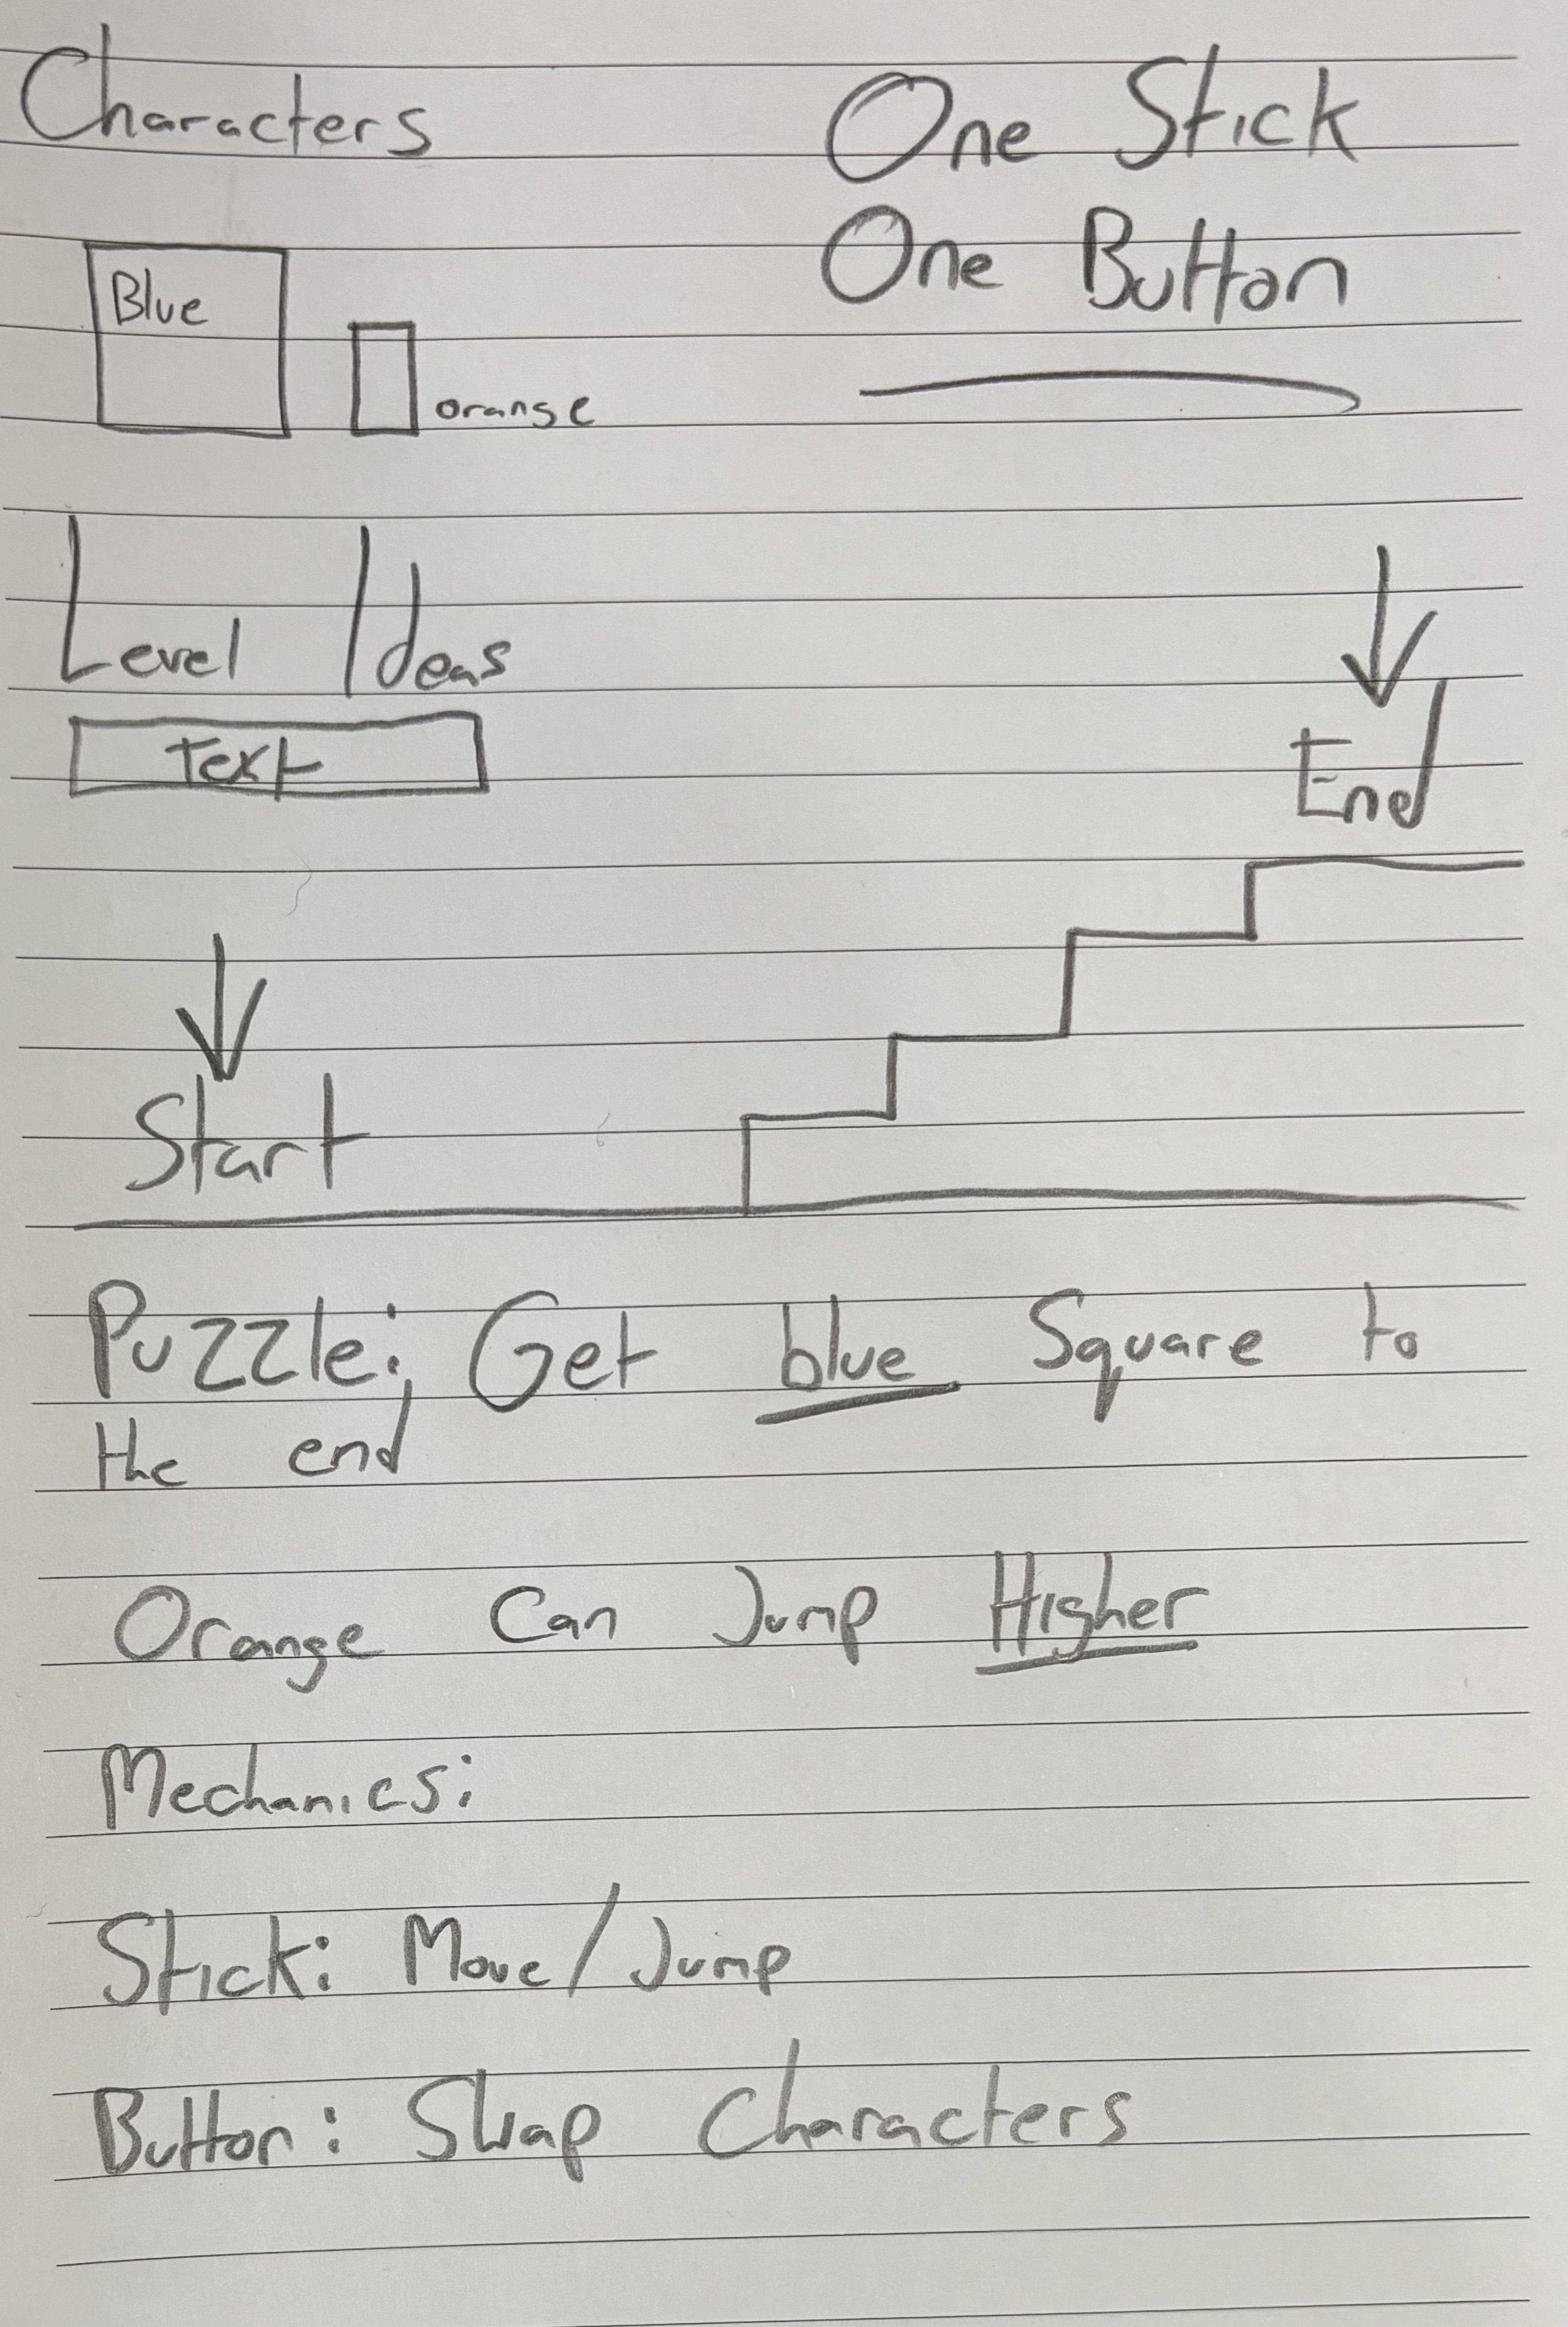 Characters
One Stick
One Button
Blue
orange
Level Ideas
Text
End
Start
Puzzle: Get blue Square to
the end
Orange Can Jump Higher
Mechanics:
Stick: Move/Jump
Button: Swap Characters